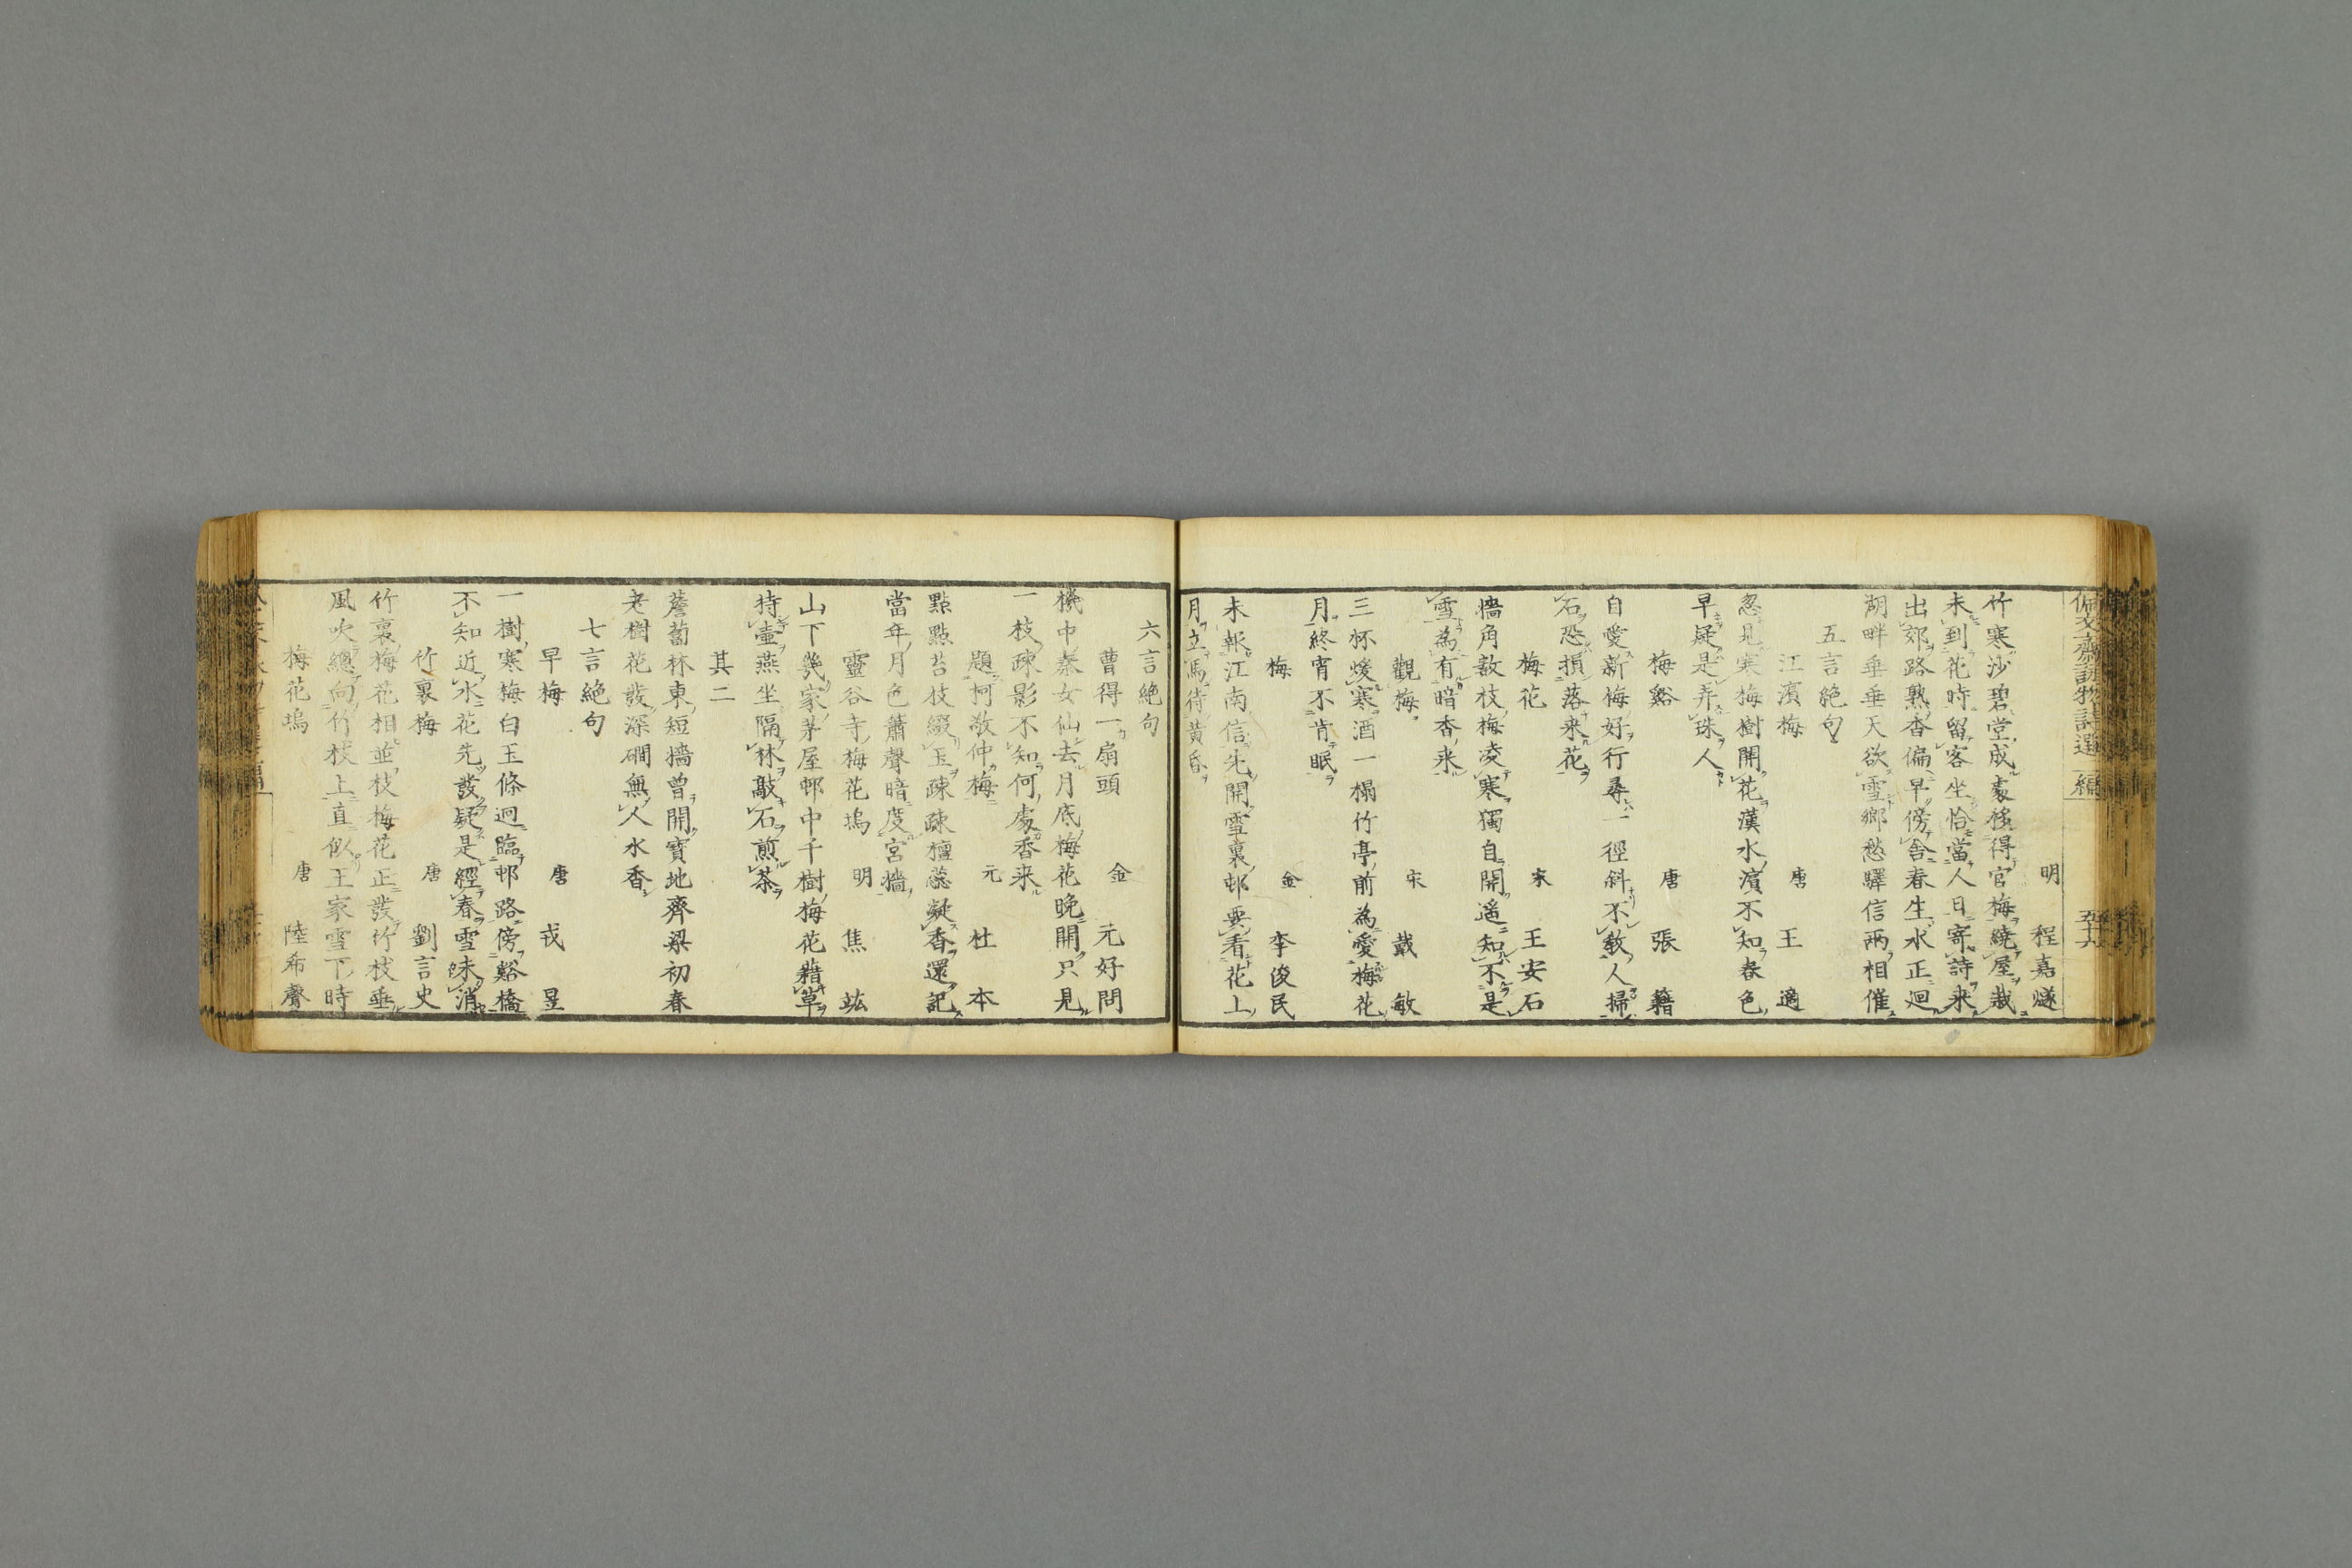 佩文齋詠物詩選 編 五十六
明 程嘉燧
竹寒沙碧堂成處移得官梅繞屋栽
未到花時留客坐恰當人日寄詩来
出郊路熟香偏早傍舎春生水正迴
湖畔垂垂天欲雪鄉愁驛信兩相催
五言絶句
江濵梅 唐 王適
忽見寒梅樹開花漢水濵不知春色
早疑是弄珠人
梅谿 唐 張籍
自愛新梅好行尋一徑斜不敎人掃
石恐損落来花
梅花 宋 王安石
墻角數枝梅凌寒獨自開遥知不是
雪為有暗香来
觀梅 宋 戴敏
三杯煖寒酒一榻竹亭前為愛梅花
月終宵不肯眠
梅 金 李俊民
未報江南信先開雪裏邨要看花上
月立馬待黃昏
六言絶句
曹得一扇頭 金 元好問
機中秦女仙去月底梅花晚開只見
一枝疎影不知何處香来
題柯敬仲梅 元 杜本
點點苔枝綴玉疎疎檀蕊凝香還記
當年月色簫聲暗度宮墻
靈谷寺梅花塢 明 焦竑
山下幾家茅屋邨中千樹梅花藉草
持壷燕坐隔林敲石煎茶
其二
薝蔔林東短墻曾開寶地齊梁初春
老樹花發深磵無人水香
七言絶句
早梅 唐 戎昱
一樹寒梅白玉條迥臨邨路傍谿橋
不知近水花先發疑是經春雪未消
竹裏梅 唐 劉言史
竹裏梅花相並枝梅花正發竹枝垂
風吹總向竹枝上直似王家雪下時
梅花塢 唐 陸希聲